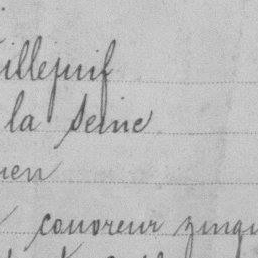 illejuif
la Seine
uen
couvreur zingu